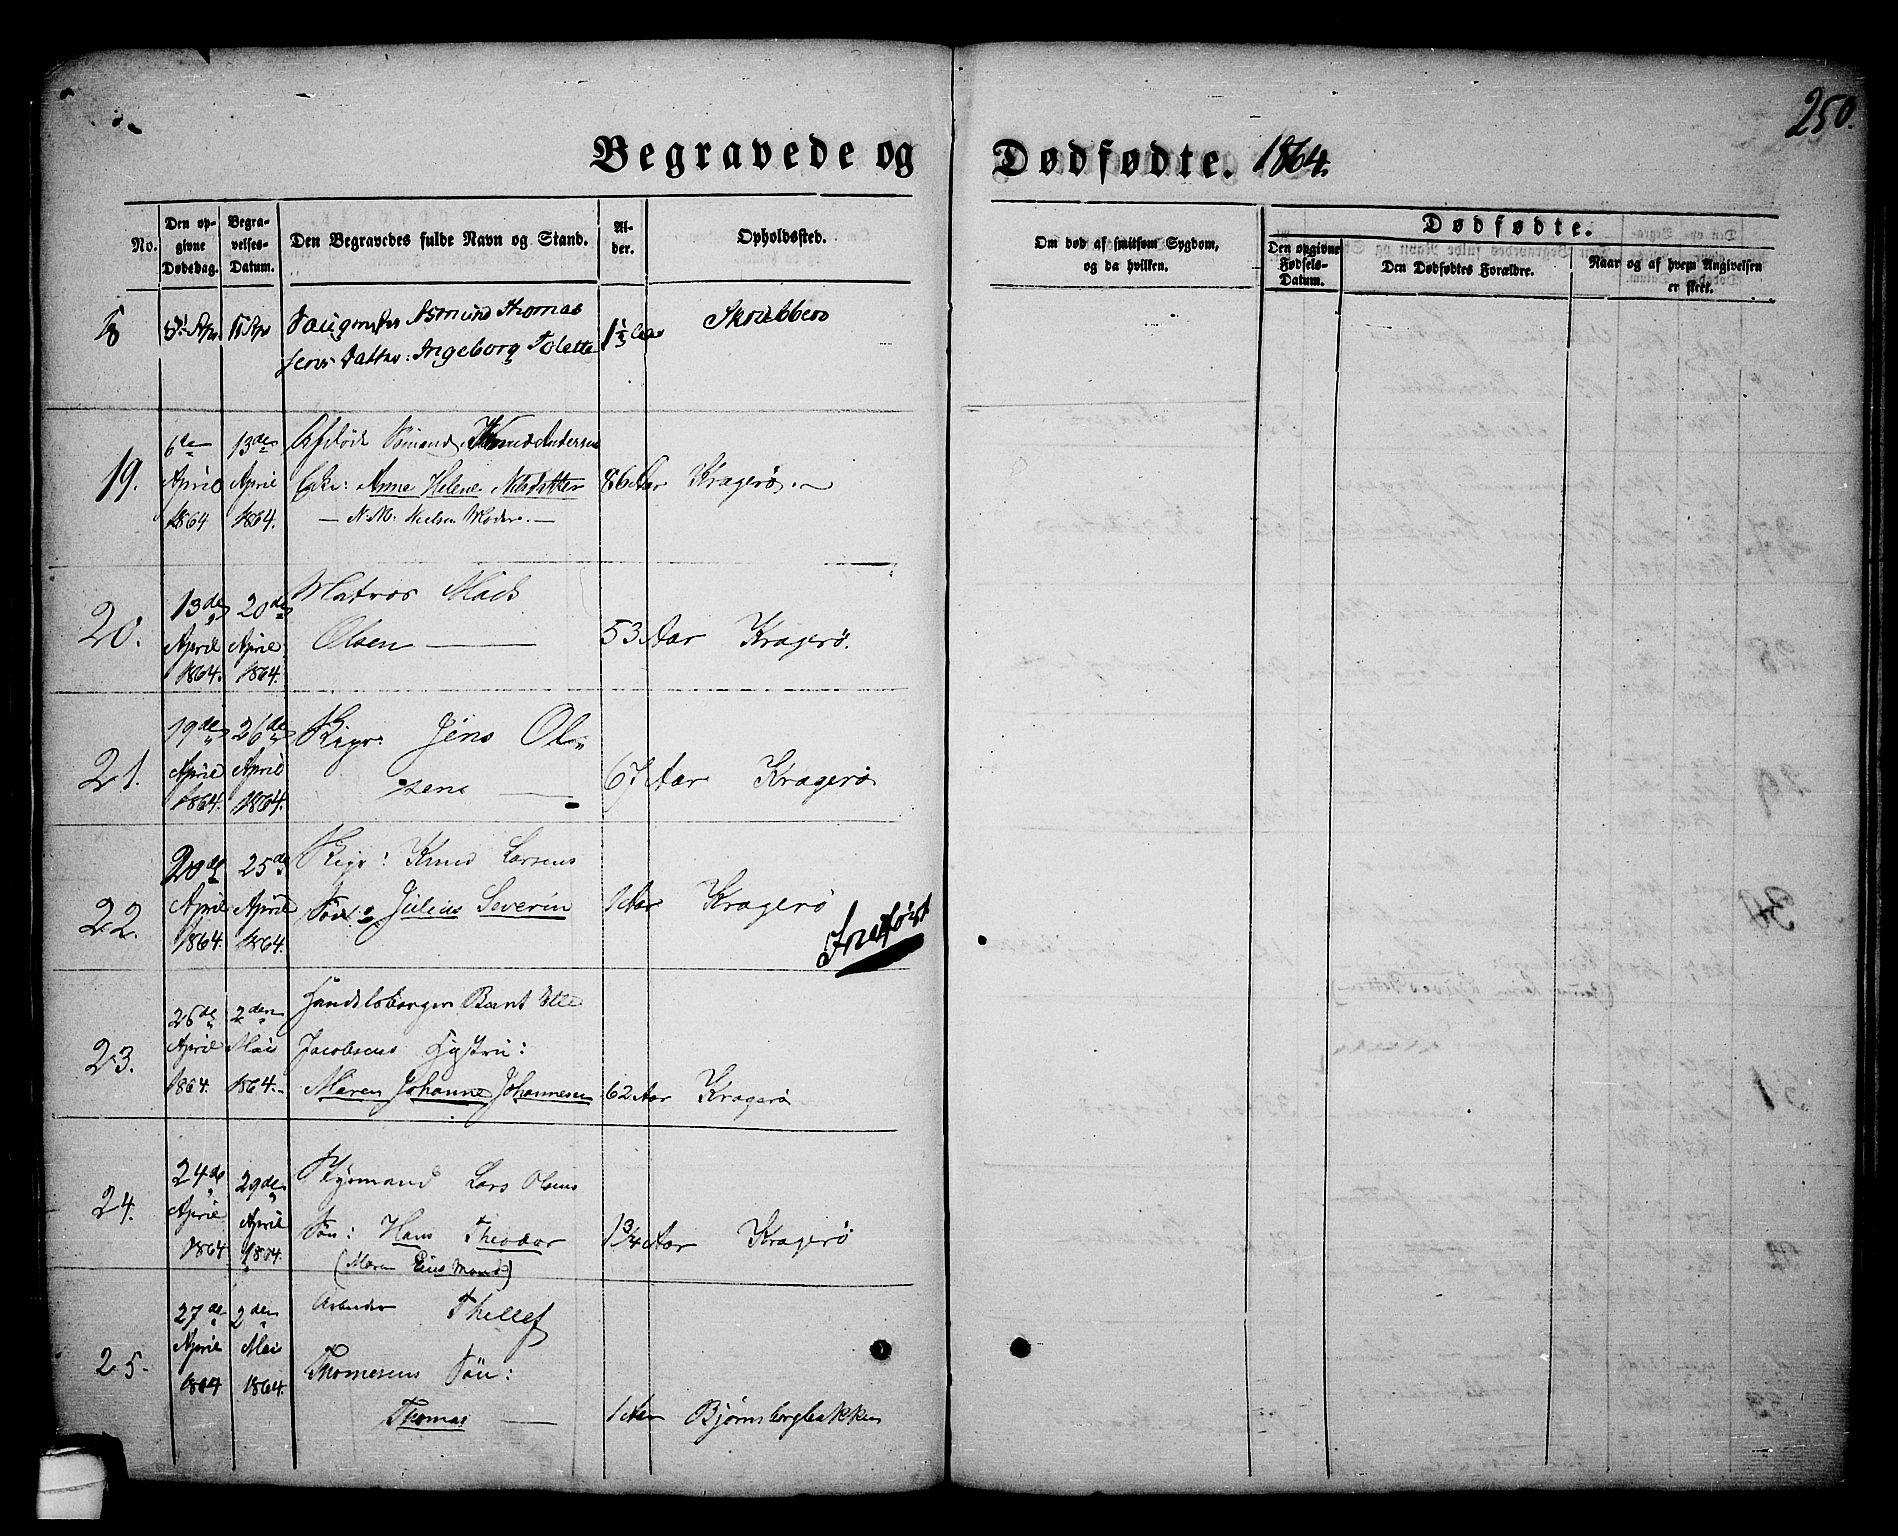 250.
Begravede og Dødfødte. 1864.
No.
Den op-
givne
Dødsdag.
Begra-
velses-
Datum.
Den Begravedes fulde Navn og Stand.
Al-
der.
Opholdssted.
Om død af smitsom Sygdom,
og da hvilken.
Dødfødte.
Den opgivne
Fødsels-
Datum.
Den Dødfødtes Forældre.
Naar og af hvem Angivelsen
er skeet.
18
Asmund Thomas
sens Datter: Ingeborg Tolette
19.
6te
April
1864
13de
April
1864.
Afdøde Sømand Knud Andersens
Enke: Anne Helene Nilsdatter
— N. M. Nielsen Moder. —
86 Aar
Kragerø. —
20.
13de
April
1864.
20de
April
1864.
Matros Mads
Olsen —
53 Aar
Kragerø.
21.
19de
April
1864.
26de
April
1864.
Skipr: Jens Ol=
sens —
67 Aar
Kragerø
22.
20de
April
1864.
25de
April
1864.
Skipr: Knud Larsens
Søn: Julius Severin
1 Aar
Kragerø
23.
26de
April
1864.
2den
Mai
1864.
Handelsborger Bent
Jacobsens Hustru:
Maren Johanne Johannesen
62 Aar
Kragerø
24.
24de
April
1864
29de
April
1864.
Styrmand Lars Olsens
Søn: Hans Theodor
1 3/4 Aar
Kragerø
25.
27de
April
1864
2den
Mai
1864.
Arbeider Thellef
Thomesens Søn:
Thomas —
1 Aar
Bjørnsborgbakken